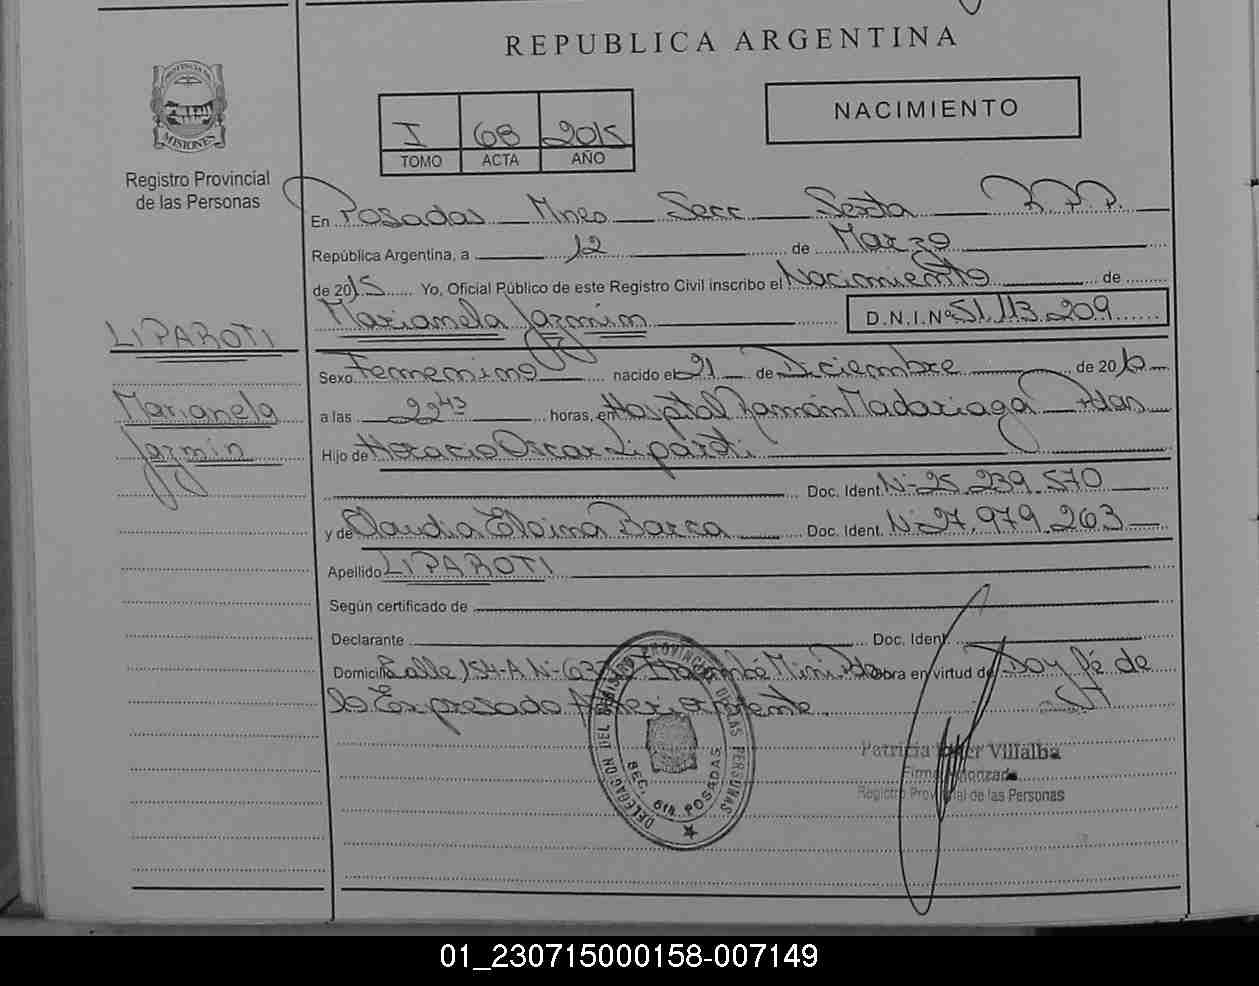 REPUBLICA ARGENTINA
PROVINCIA DE
MISIONES
Registro Provincial
de las Personas
I 68 2015
TOMO ACTA AÑO
NACIMIENTO
En Posadas Mnes Secc Sexta R.P.P.
República Argentina, a 12 de Marzo
de 2015 Yo, Oficial Público de este Registro Civil inscribo el Nacimiento de
Marianela Jazmin D.N.I.Nº 51.113.209
LIPAROTI
Marianela
Jazmin
Sexo Femenino nacido el 21 de Diciembre de 2010
a las 22 43 horas, en Hospital Ramón Madariaga Pdas
Hijo de Horacio Oscar Liparoti
Doc. Ident. Nº 25.239.570
y de Claudia Elaina Barca Doc. Ident. Nº 27.979.263
Apellido LIPAROTI
Según certificado de
Declarante Doc. Ident.
Domicilio Calle 154-A Nº 637 Itaembé Mini Pdas Obra en virtud de Doy fé de
lo Expresado Anteriormente
DELEGACION DEL REGISTRO PROVINCIAL DE LAS PERSONAS
SEC. 6ta. POSADAS
Patricia Villalba
Firma Autorizada
Registro Provincial de las Personas
01_230715000158-007149